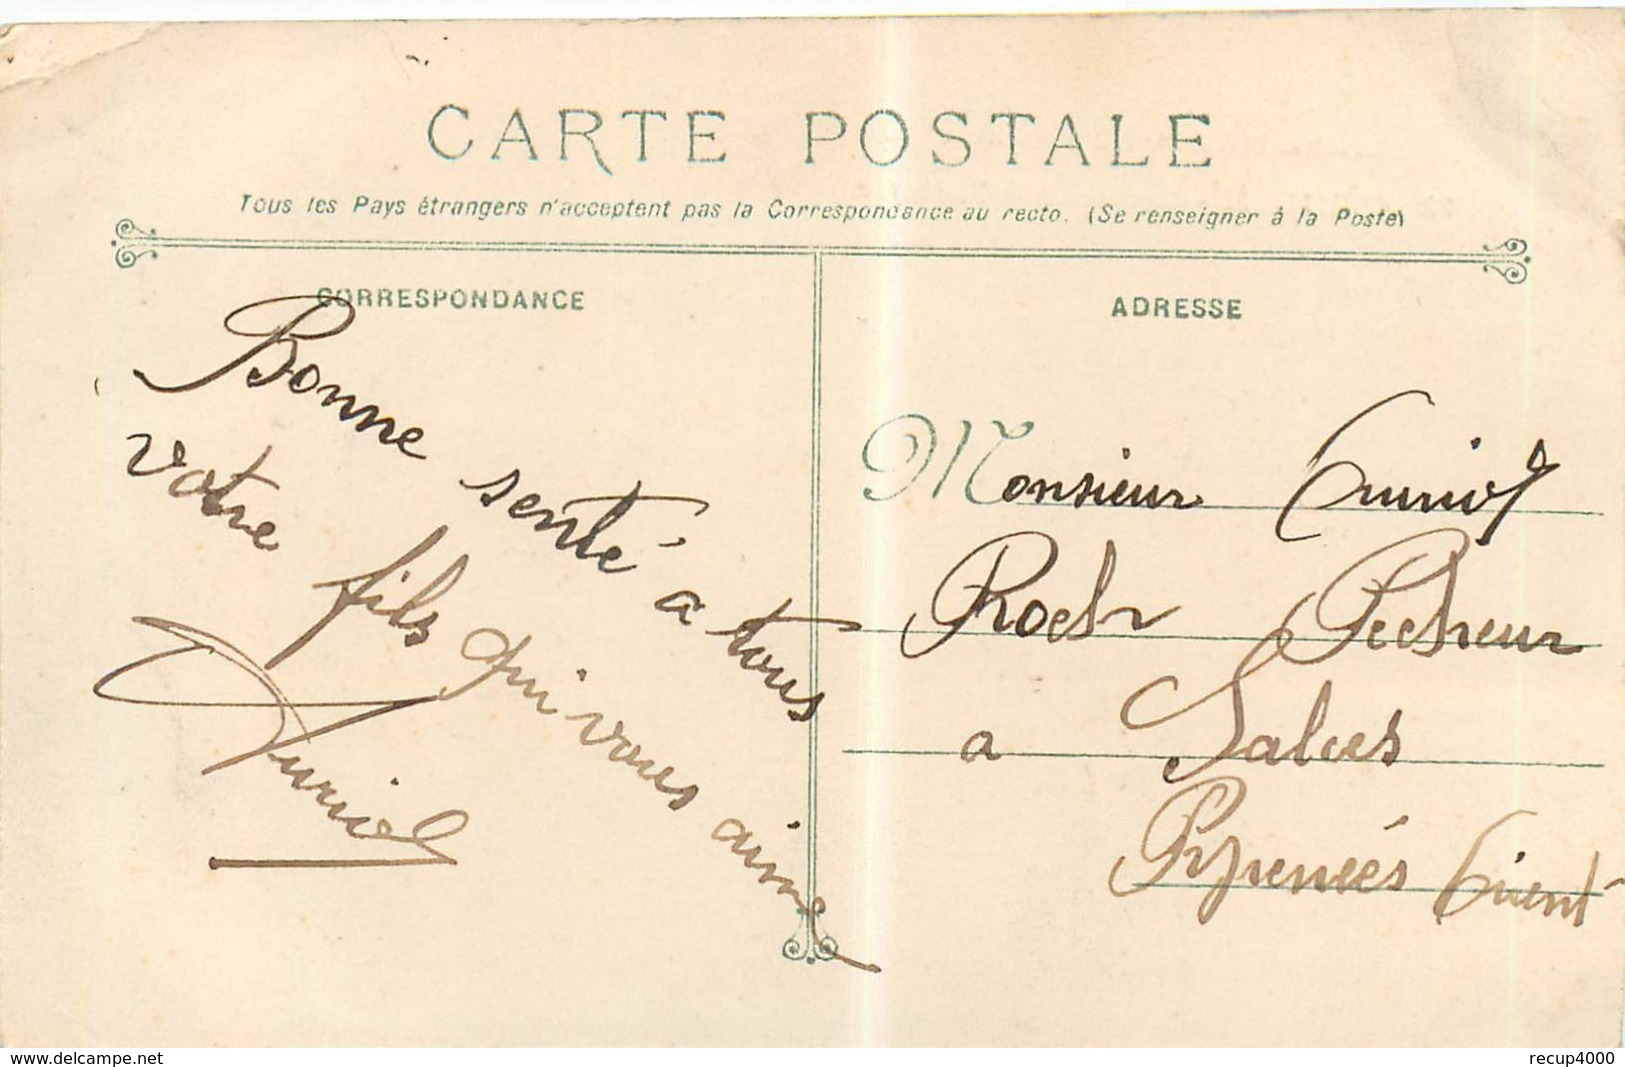 CARTE POSTALE
Tous les Pays étrangers n'acceptent pas la Correspondance au recto. (Se renseigner à la Poste)
CORRESPONDANCE
Bonne senté a tous
votre fils qui vous aime
ADRESSE
Monsieur
Roch Pecheur
a Salces
Pyrenéés Orient
www.delcampe.net
recup4000